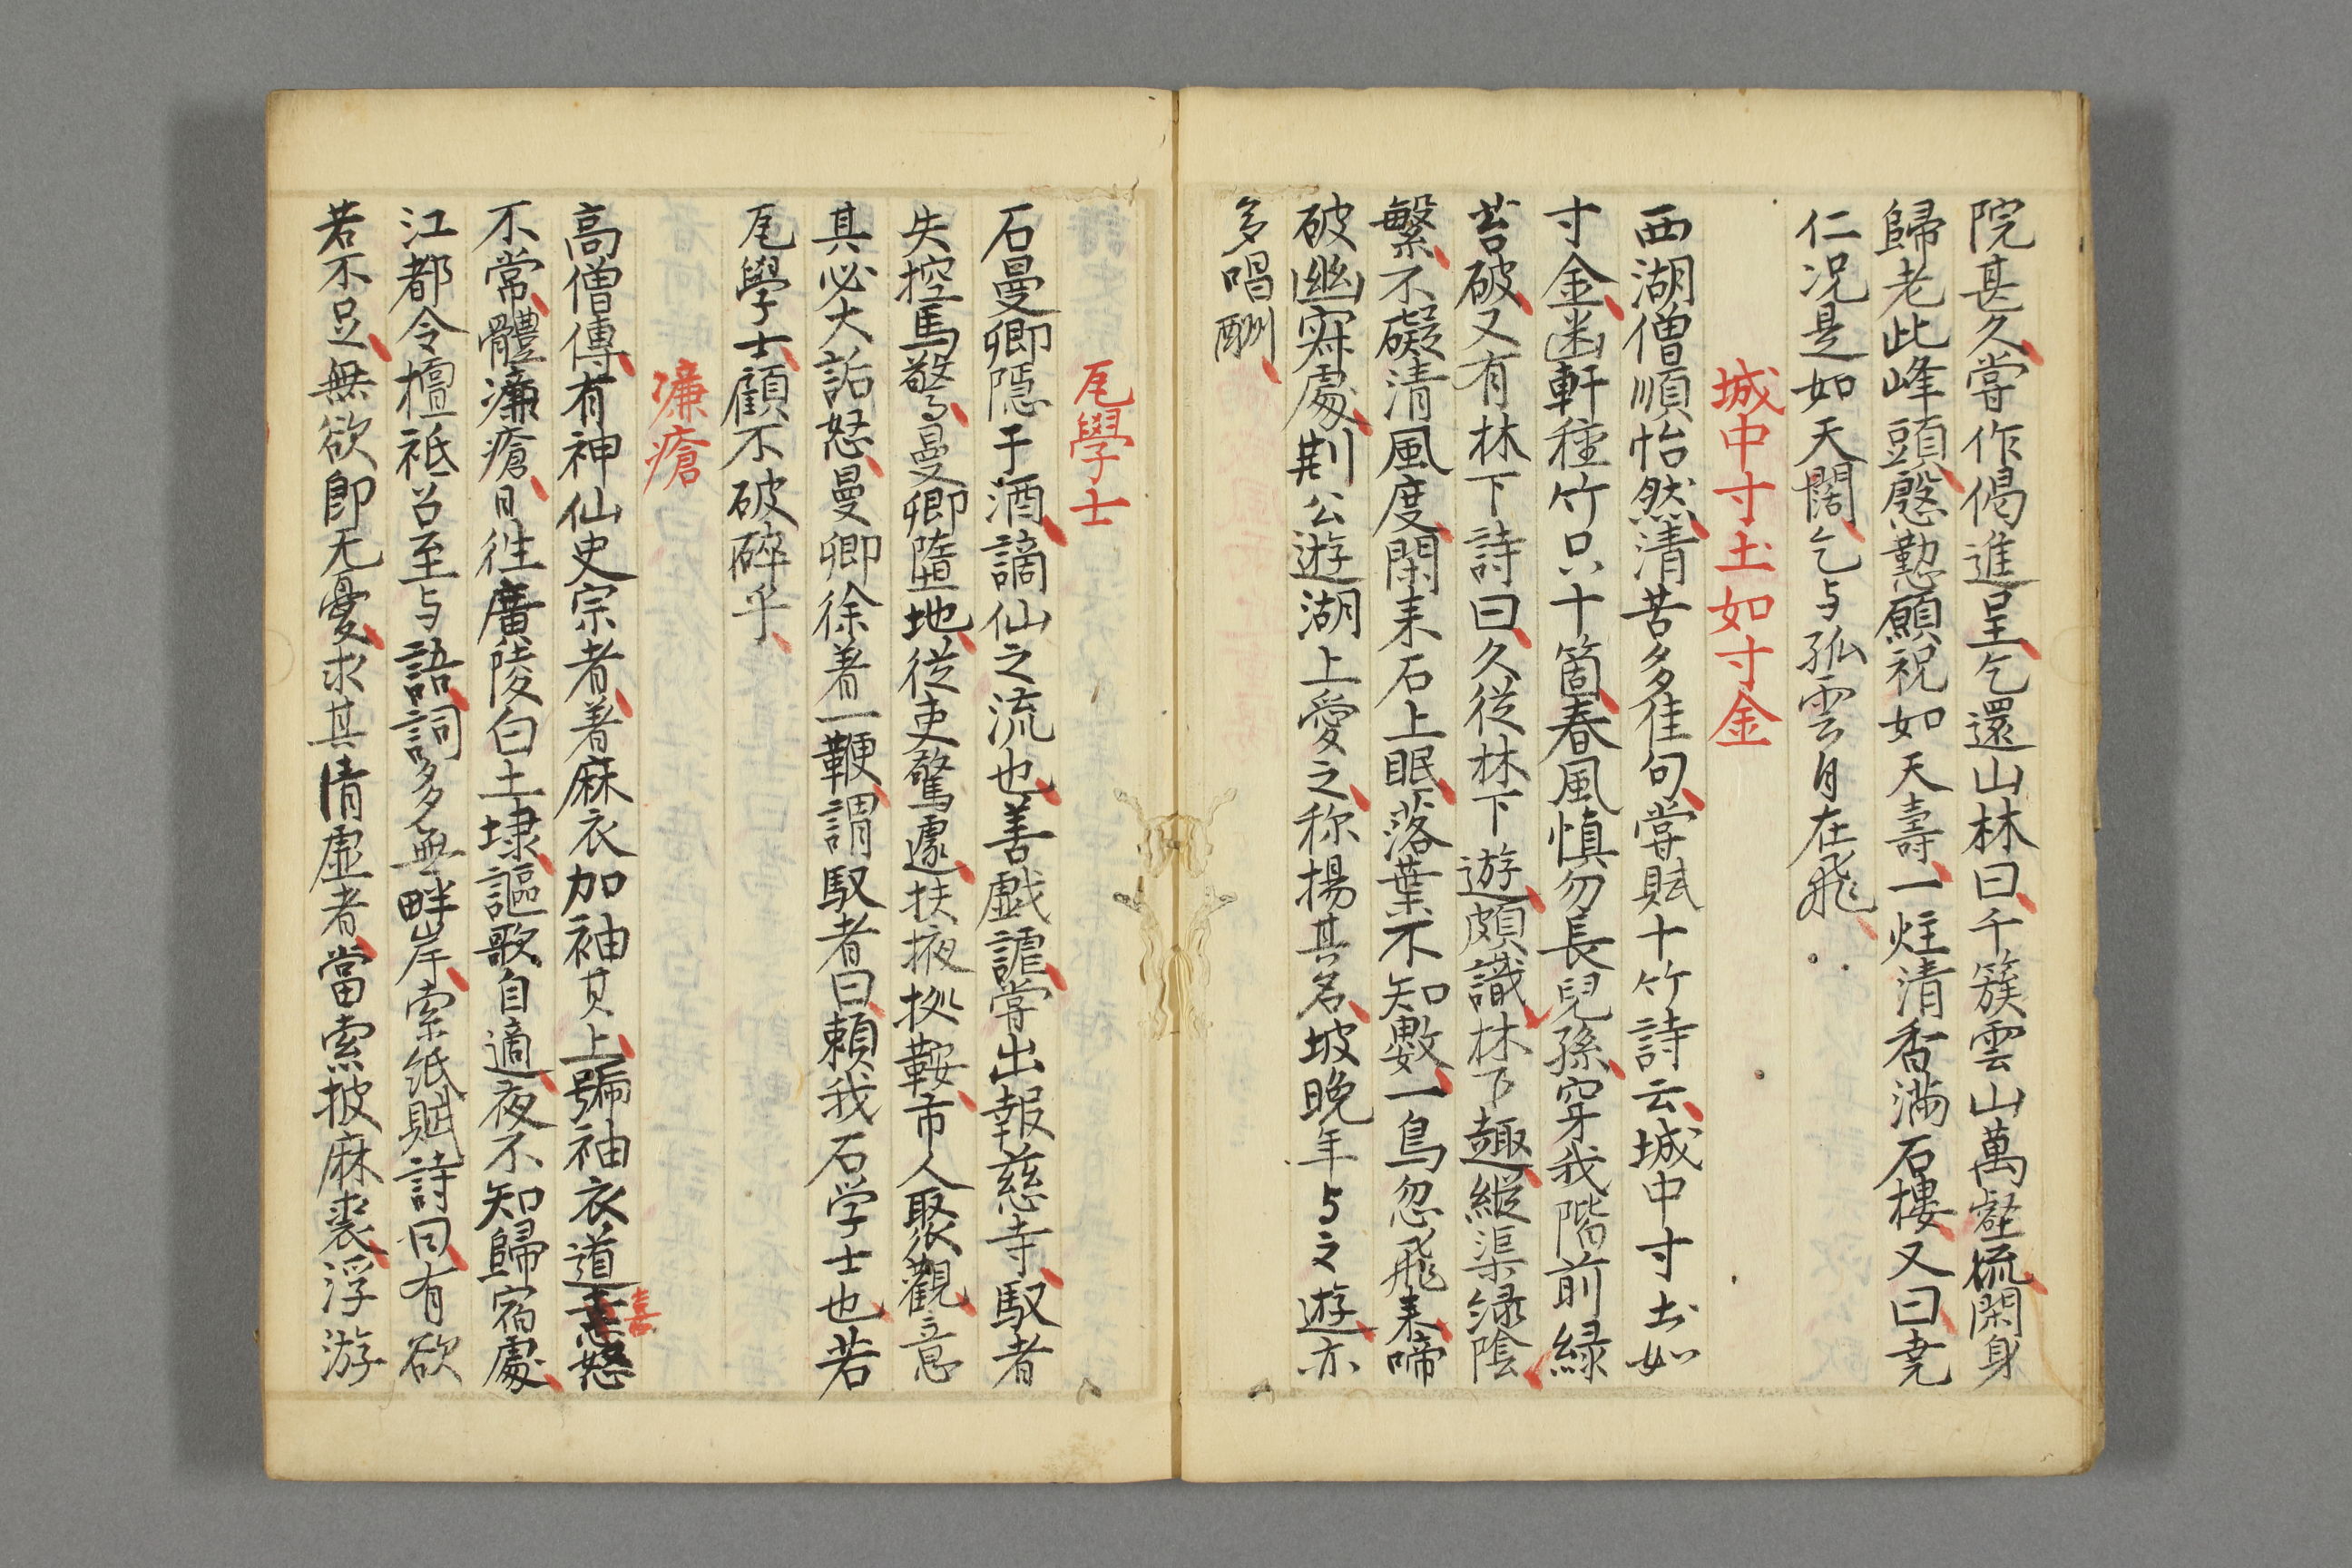 院甚久嘗作偈進呈乞還山林曰千簇雲山萬壑流閑身
歸老此峰頭慇懃願祝如天壽一炷清香満石樓又曰尭
仁况是如天闊乞与孤雲自在飛
城中寸土如寸金
西湖僧順怡然清苦多佳句嘗賦十竹詩云城中寸土如
寸金幽軒種竹只十箇春風慎勿長兒孫穿我階前緑
苔破又有林下詩曰久從林下遊頗識林下趣縦渠緑陰
繁不礙清風度閑来石上眠落葉不知數一鳥忽飛来啼
破幽寂處荆公遊湖上愛之称揚其名坡晚年与之遊亦
多唱酬
瓦學士
石曼卿隠于酒謫仙之流也善戯謔嘗出報慈寺馭者
失控馬驚曼卿墮地從吏驚遽扶掖拯鞍市人聚觀意
其必大詬怒曼卿徐著一鞭謂馭者曰頼我石学士也若
瓦學士顧不破碎乎
㾾瘡
高僧傳有神仙史宗者著麻衣加袖其上號袖衣道喜怒
不常體㾾瘡日往廣陵白土埭謳歌自適夜不知歸宿處
江都令檀祗召至与語詞多無畔岸索紙賦詩曰有欲
若不足無欲即无憂求其清虚者當索披麻裘浮游